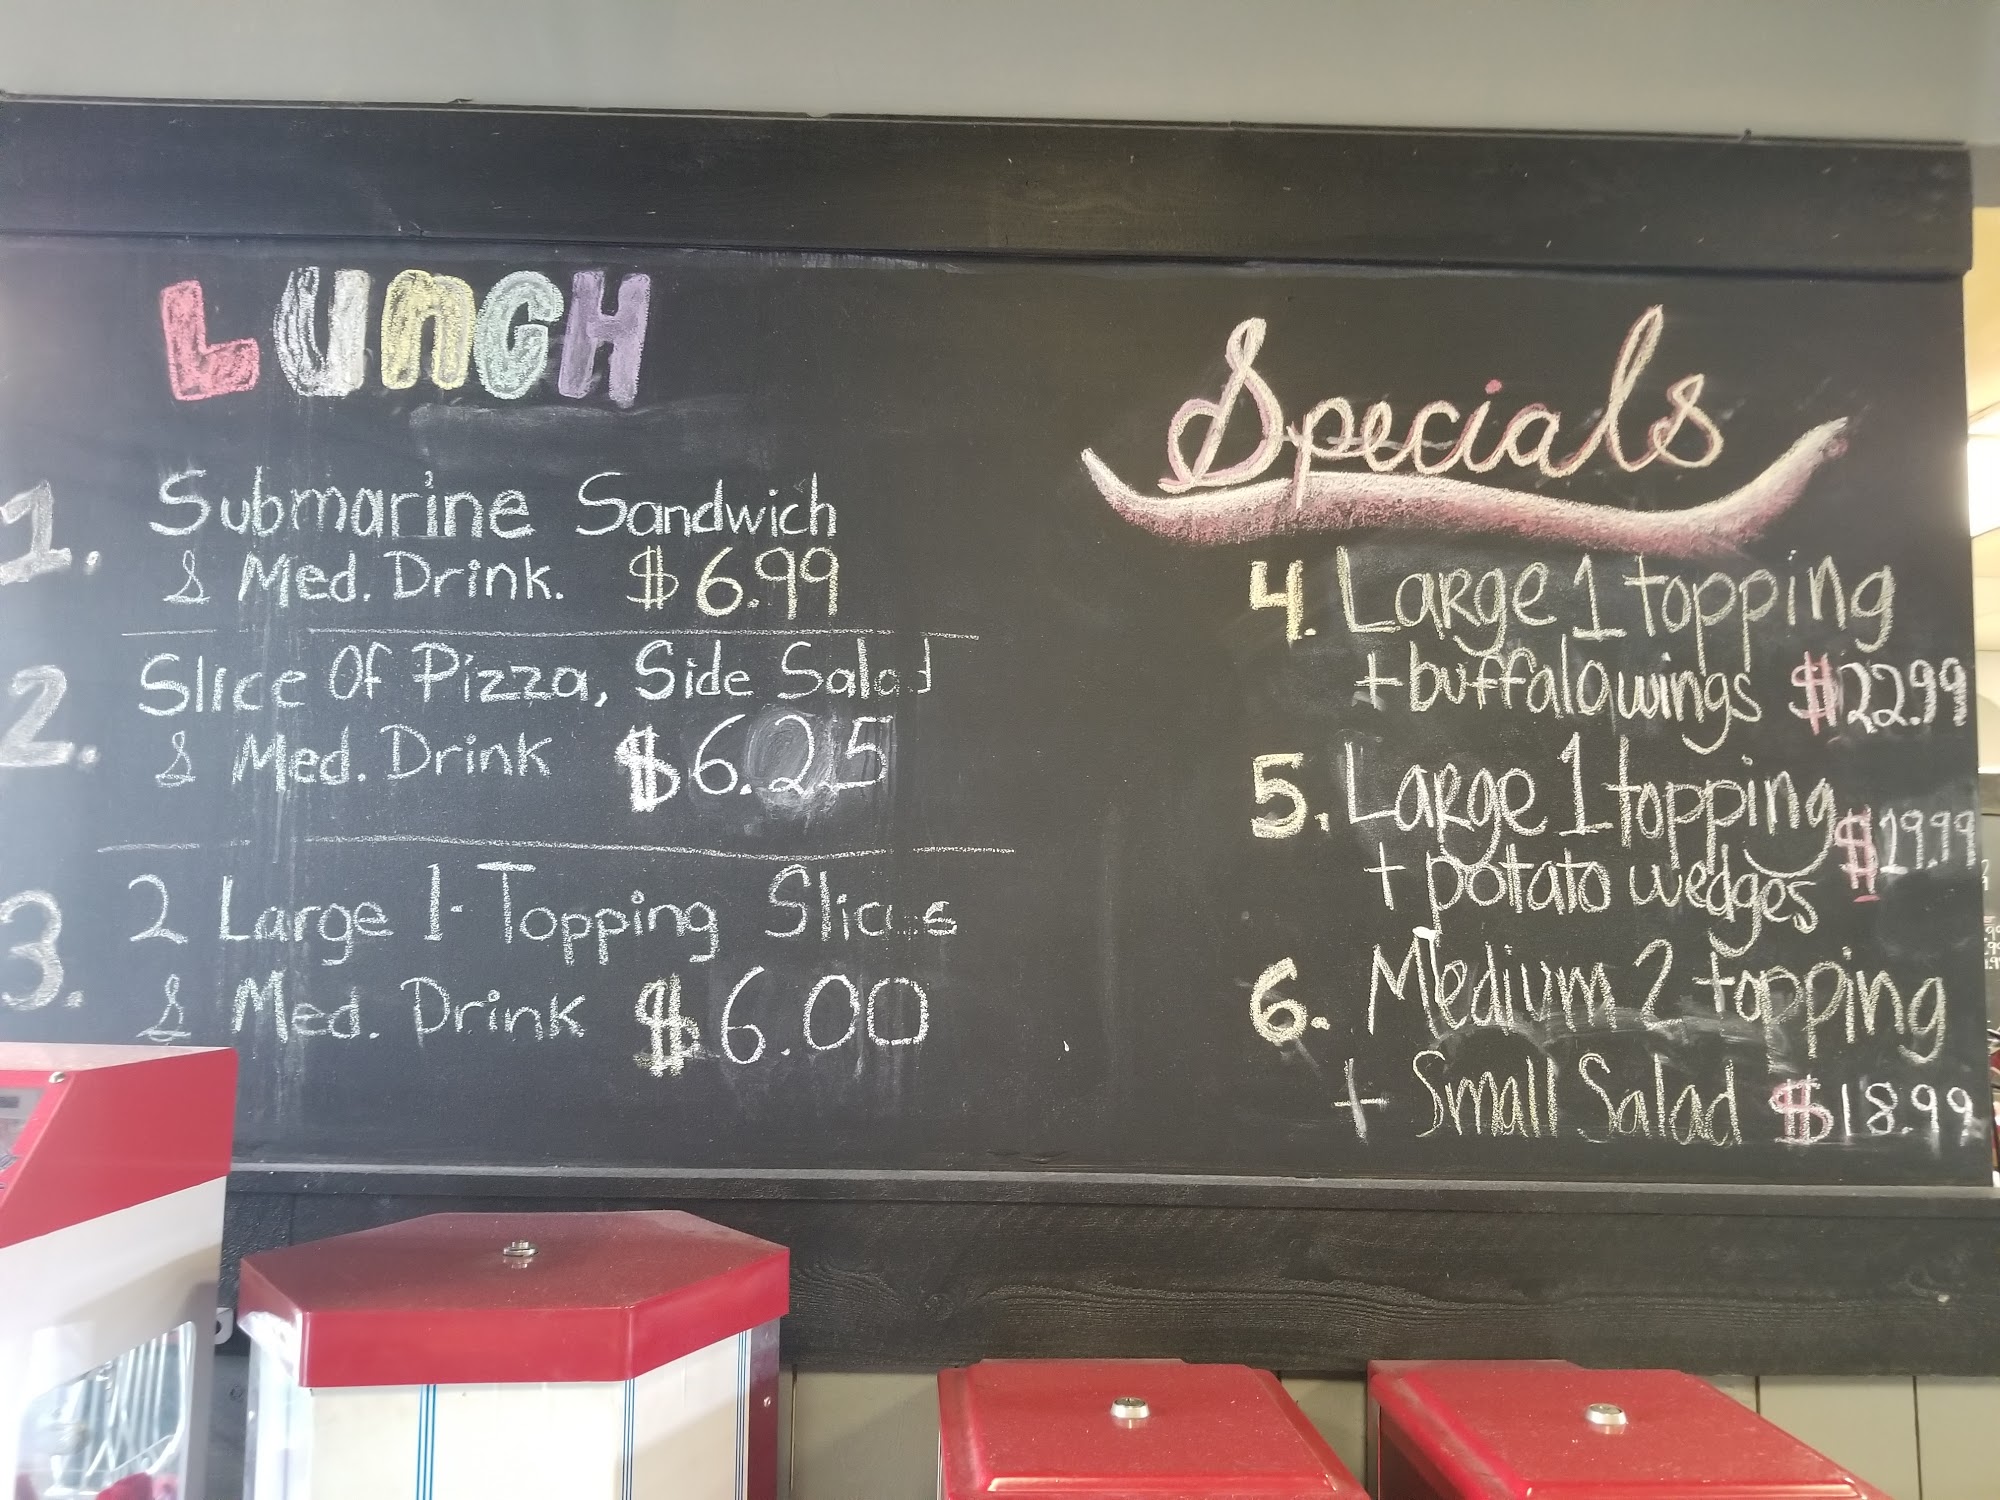 LUNCH
1. Submarine Sandwich
& Med. Drink. $6.99
2. Slice Of Pizza, Side Salad
& Med. Drink $6.25
3. 2 Large 1-Topping Slices
& Med. Drink $6.00
Specials
4. Large 1 topping
+ buffalo wings $22.99
5. Large 1 topping $19.99
+ potato wedges
6. Medium 2 topping
+ Small Salad $18.99